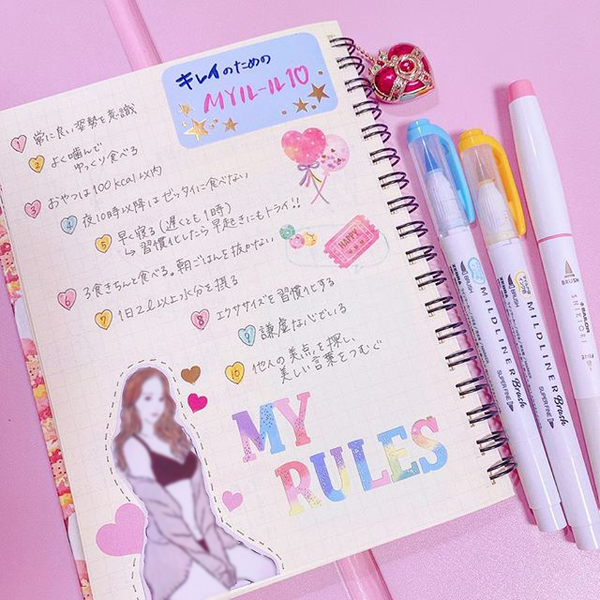 キレイのための
MYルール10
1 常に良い姿勢を意識
2 よく噛んで
ゆっくり食べる
3 おやつは100kcal以内
4 夜10時以降はゼッタイに食べない
5 早く寝る(遅くとも1時)
↳ 習慣化したら早起きにもトライ!!
6 3食きちんと食べる。朝ごはんを抜かない
7 1日2ℓ以上水分を摂る
8 エクササイズを習慣化する
9 謙虚な心でいる
10 他人の美点を探し、
美しい言葉をつむぐ
HAPPY
MY
RULES
ZEBRA BRUSH MILDLINER Brush SUPER FINE
ZEBRA BRUSH MILDLINER Brush SUPER FINE
BRUSH SAILOR SHIKIORI